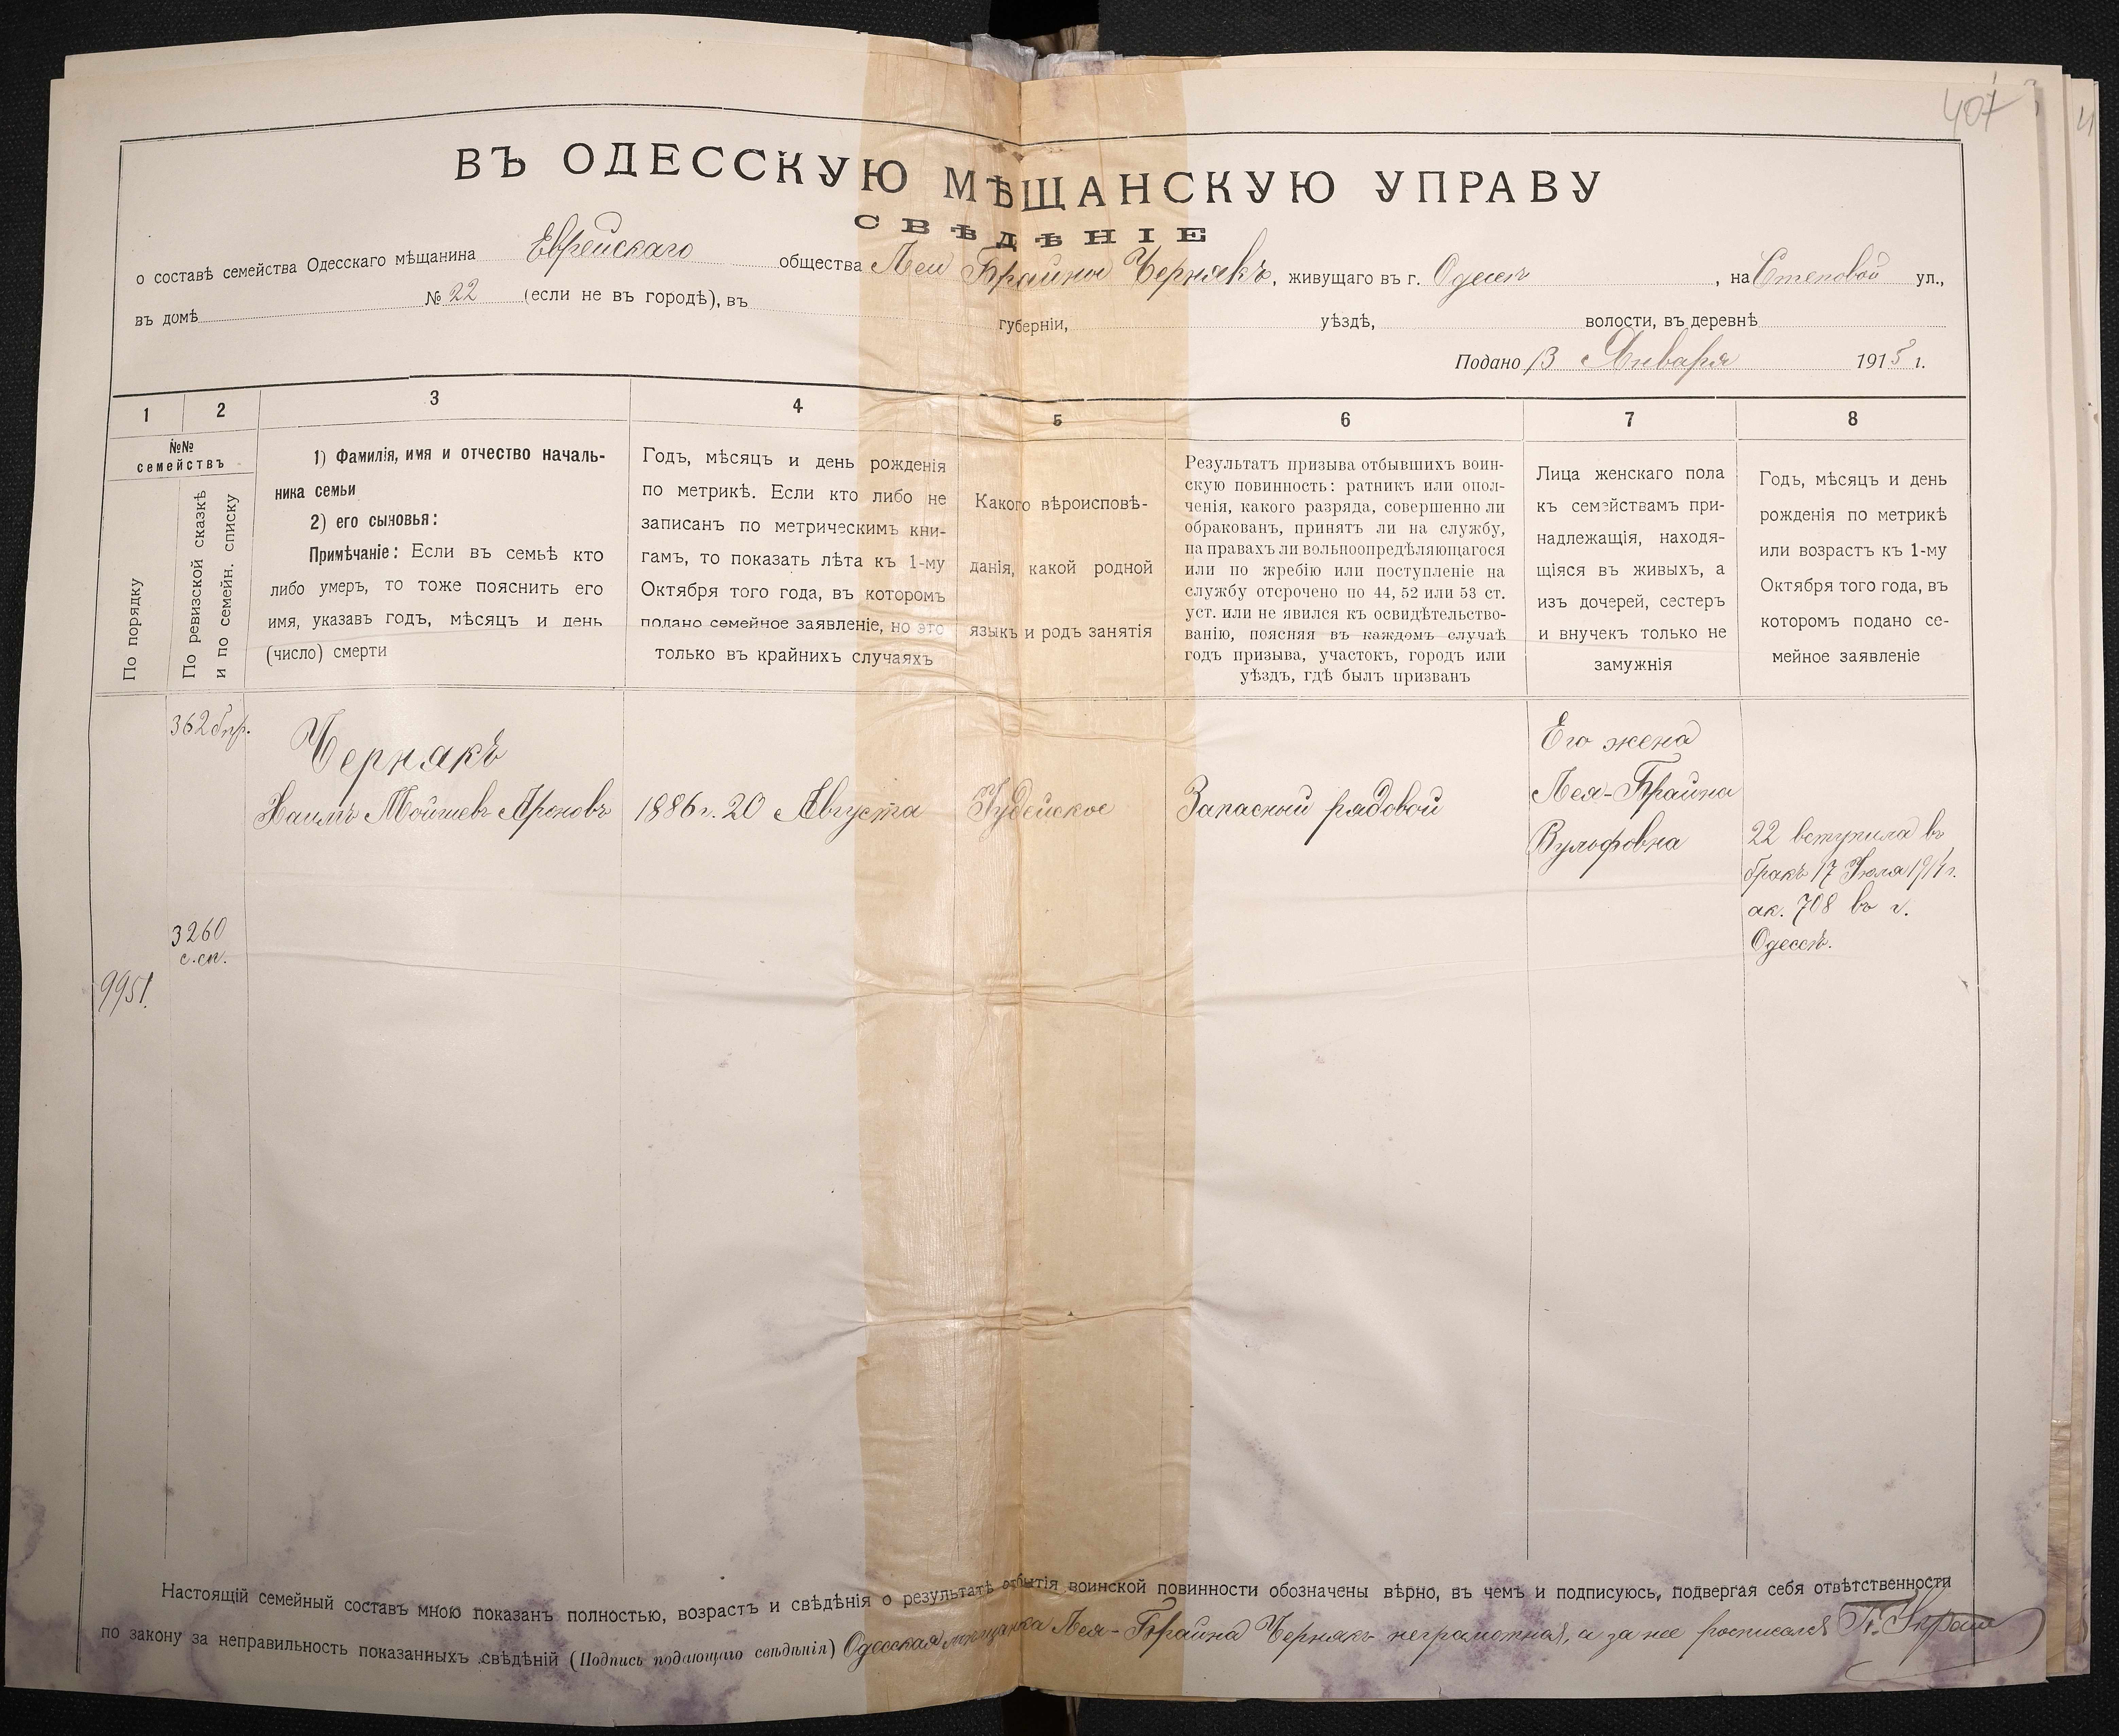 407
ВЪ ОДЕССКУЮ МѢЩАНСКУЮ УПРАВУ
СВѢДѢНІЕ
о составѣ семейства Одесскаго мѣщанина Еврейскаго общества Леи Брайны Чернякъ, живущаго въ г. Одессѣ, на Степовой ул.,
въ домѣ № 22 (если не въ городѣ), въ губерніи, уѣздѣ, волости, въ деревнѣ
Подано 13 Января 1915 г.
1 2 3 4 5 6 7 8
№№
семействъ
По порядку
По ревизской сказкѣ
и по семейн. списку
1) Фамилія, имя и отчество началь-
ника семьи
2) его сыновья:
Примѣчаніе: Если въ семьѣ кто
либо умеръ, то тоже пояснить его
имя, указавъ годъ, мѣсяцъ и день
(число) смерти
Годъ, мѣсяцъ и день рожденія
по метрикѣ. Если кто либо не
записанъ по метрическимъ кни-
гамъ, то показать лѣта къ 1-му
Октября того года, въ которомъ
подано семейное заявленіе, но это
только въ крайнихъ случаяхъ
Какого вѣроисповѣ-
данія, какой родной
языкъ и родъ занятія
Результатъ призыва отбывшихъ воин-
скую повинность: ратникъ или опол-
ченія, какого разряда, совершенно ли
обракованъ, принятъ ли на службу,
на правахъ ли вольноопредѣляющагося
или по жребію или поступленіе на
службу отсрочено по 44, 52 или 53 ст.
уст. или не явился къ освидѣтельство-
ванію, поясняя въ каждомъ случаѣ
годъ призыва, участокъ, городъ или
уѣздъ, гдѣ былъ призванъ
Лица женскаго пола
къ семействамъ при-
надлежащія, находя-
щіяся въ живыхъ, а
изъ дочерей, сестеръ
и внучекъ только не
замужнія
Годъ, мѣсяцъ и день
рожденія по метрикѣ
или возрастъ къ 1-му
Октября того года, въ
которомъ подано се-
мейное заявленіе
362
Чернякъ
Хаимъ Мойшевъ Ароновъ
1886 г. 20 Августа
Іудейское
Запасный рядовой
Его жена
Лея-Брайна
Вульфовна
22 вступила въ
бракъ 17 Іюля 1914 г.
ак. 708 въ г.
Одессѣ.
3260
с.сп.
9951.
Настоящій семейный составъ мною показанъ полностью, возрастъ и свѣдѣнія о результатѣ отбытія воинской повинности обозначены вѣрно, въ чемъ и подписуюсь, подвергая себя отвѣтственности
по закону за неправильность показанныхъ свѣдѣній (Подпись подающаго свѣдѣнія) Одесская мѣщанка Лея-Брайна Чернякъ неграмотная, а за нее росписался